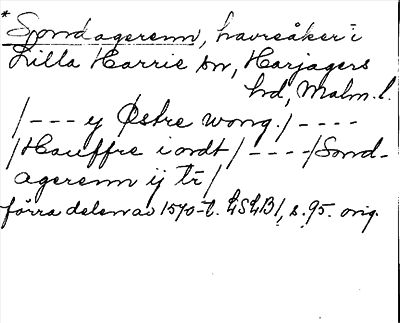 * Sondagerenn, havreåker i
Lilla Harrie sn, Harjagers
hd, Malm. l.
/--- y Østre wong./----
/Hauffre iordt/----/Sond-
agerenn ij tr/
förra delen av 1570-t. LSLB1, s. 95. orig.